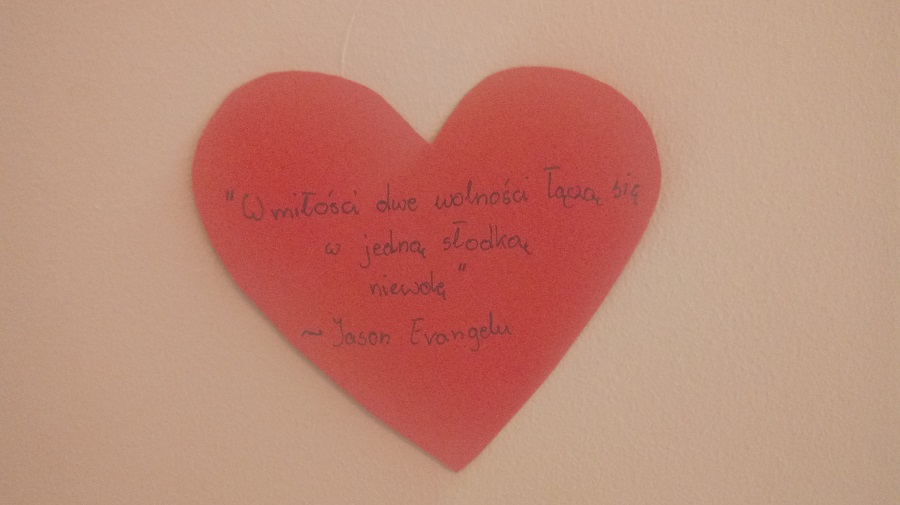 "W miłości dwe wolności łączą się
w jedną słodką
niewolę"
~ Jason Evangelu